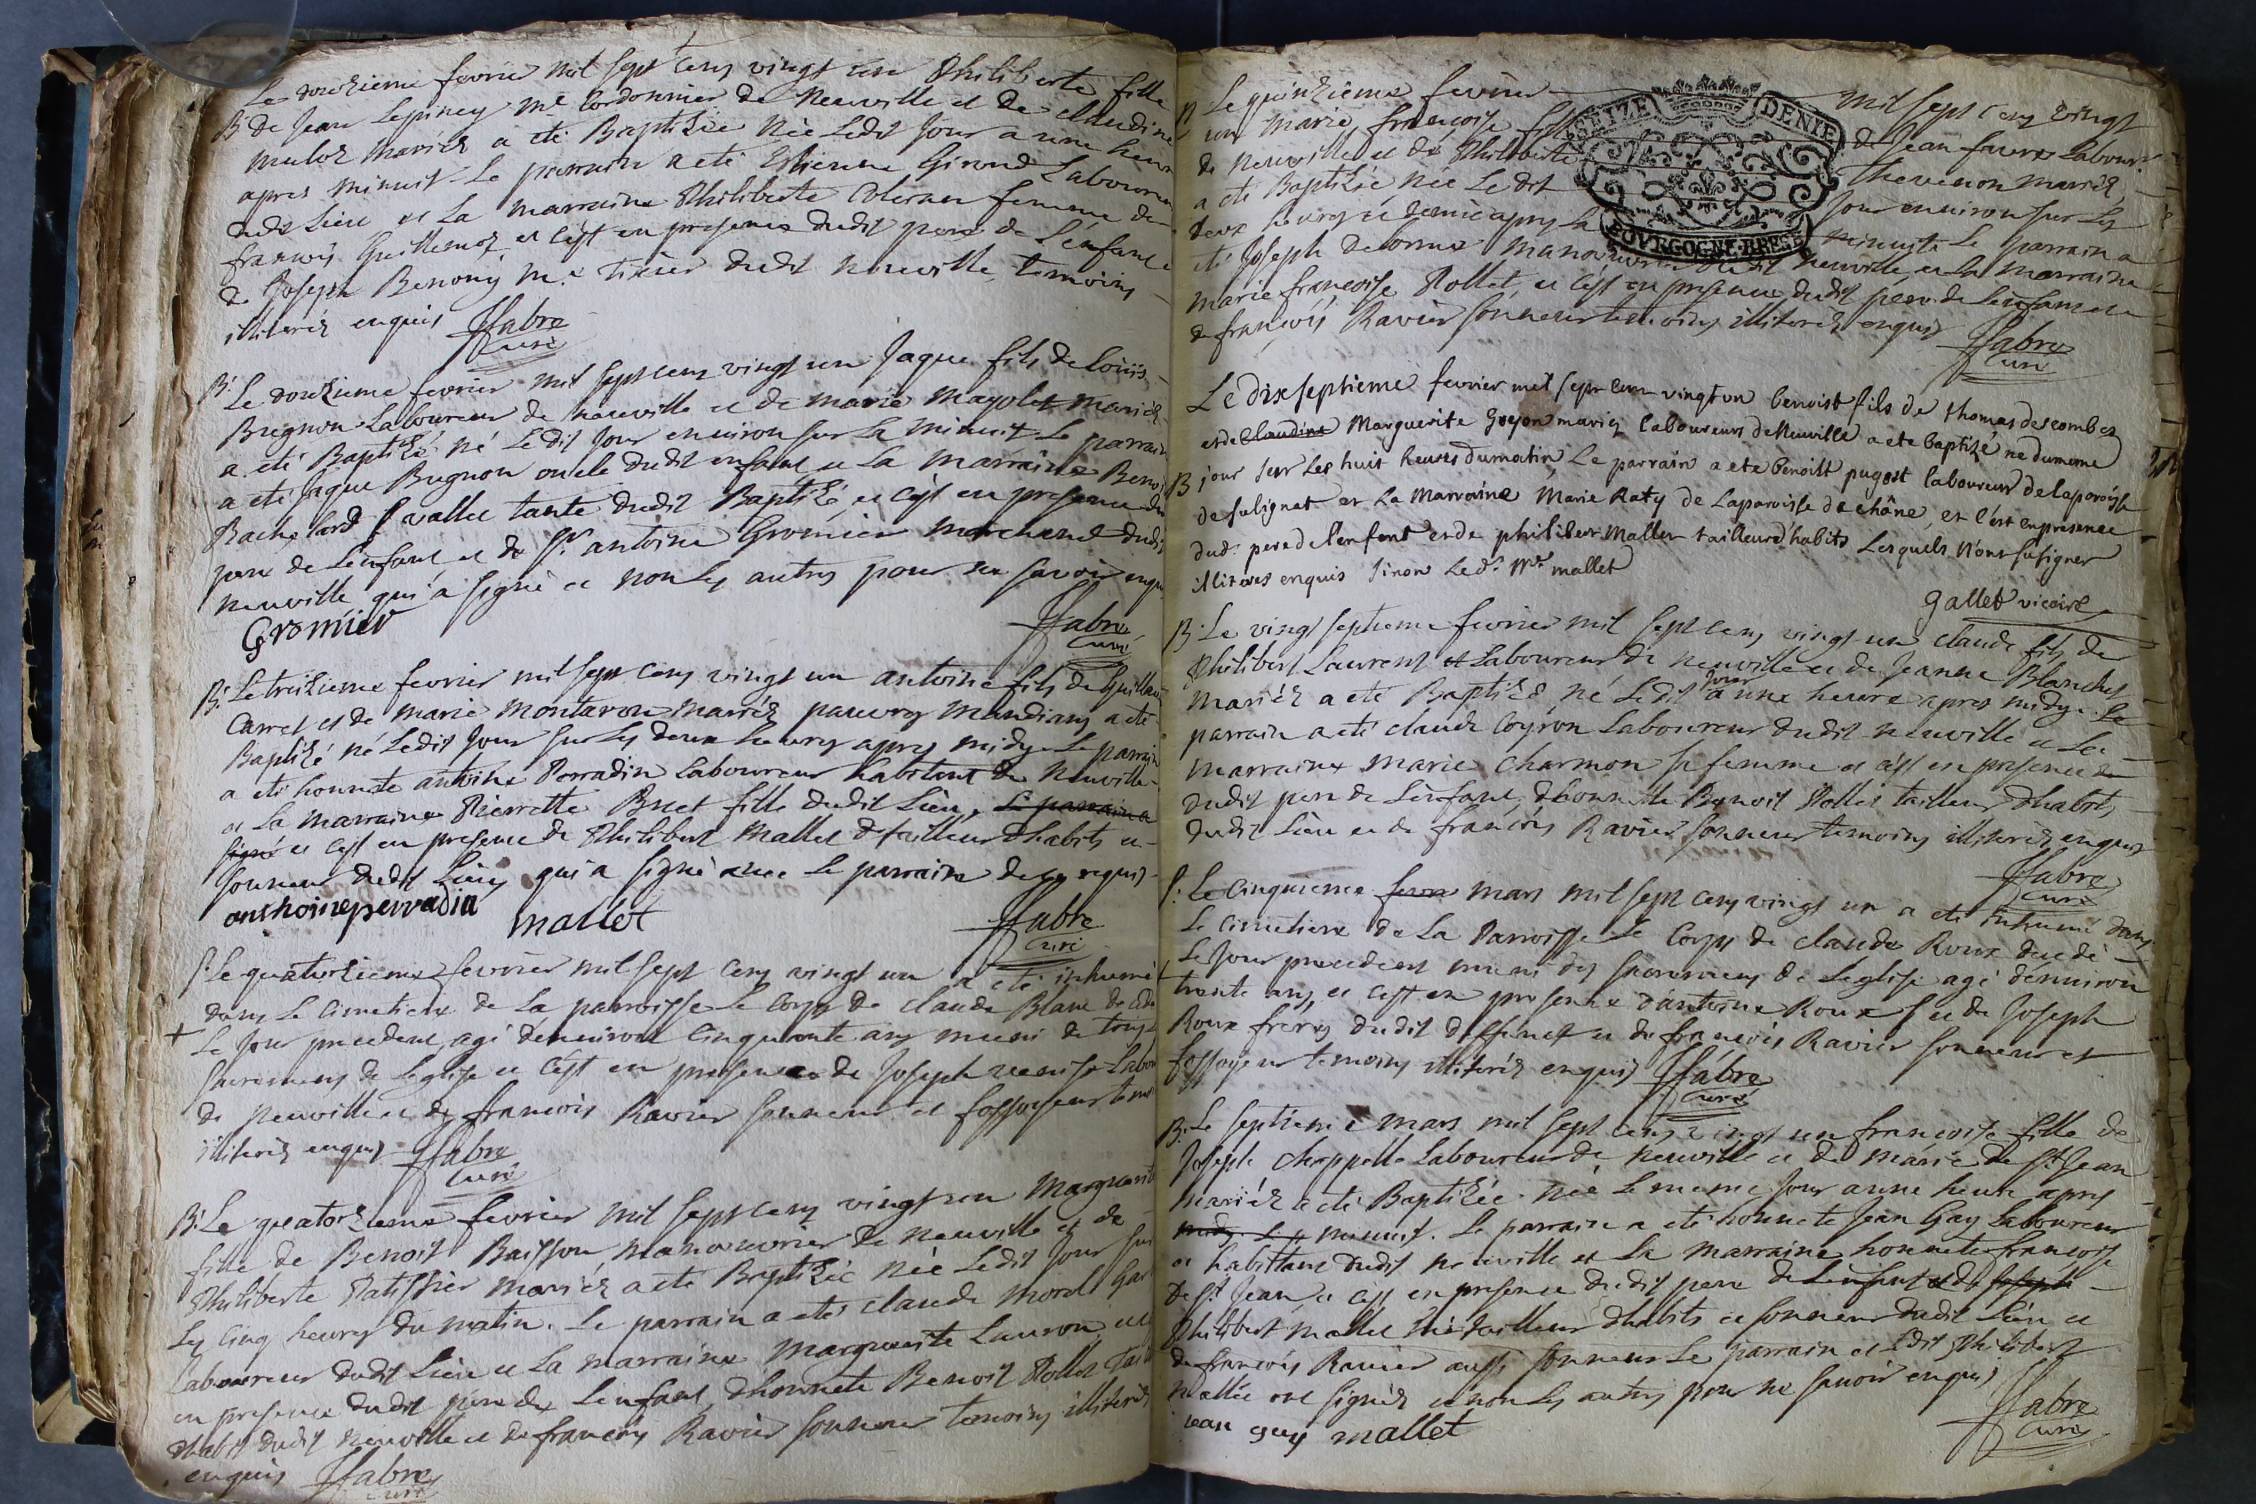 Le douzieme fevrier mil sept cens vingt un Philiberte fille
B. de Jean Lepiney Me Cordonnier de Neuville et de Claudine
mulot mariéz a eté Baptizée Née Ledit Jour a une heure
apres minuit Le parrain a eté Estienne Giroud Laboureur
dudt Lieu et La marraine Philiberte femme de
francois Guillemot et c'est en presence dudit pere de L'enfant
de Joseph Benony Me Tixier dudit neuville temoins
illiteréz enquis ffabre
curé
B. Le douzieme fevrier mil sept cens vingt un Jaque fils de Loüis
Brugnon Laboureur de neuville et de marie mayolet mariéz
a eté Baptizé né Ledit Jour environ sur La minuit Le parrain
a eté Jaque Brugnon oncle dudit enfant et La marraine Benoi
Rachelard vallet tante dudit Baptizé, et c'est en presence du
pere de L'enfant et de Sr antoine Gromier marchand dudit
neuville qui a signé et non Les autres pour ne savoir enquis
Gromier ffabre
curé
B. Le treizieme fevrier mil sept cens vingt un antoine fils de Guillau
Carret et de marie montaron mariéz pauvres mandians a eté
Baptizé né Ledit Jour sur Les deux heures apres midy Le parrain
a eté honnete antoine Perradin Laboureur habitant de Neuville
et La marraine Pierrette Buet fille dudit Lieu, Le parrain a
signé et c'est en presence de Philibert Mallet tailleur dhabits et
sonneur dudit Lieu qui a signé avec le parrain de ce requis
anthoine perradin mallet ffabre
curé
S. Le quatorzieme fevrier mil sept cens vingt un a eté inhumé
dans Le Cimetiere de La parroisse Le Corps de claude Blanc decedé
+ Le Jour precedent, agé denviron Cinquante ans muni de tous
sacremens de Leglise et c'est en presence de Joseph Labou
de neuville et de francois Ravier sonneur et fossoyeur tem
illiteréz enquis ffabre
curé
B. Le quatorzieme fevrier mil sept cens vingt un marguerite
fille de Benoit Baisson manoeuvrier de neuville et de
Philiberte Patissier mariéz a eté Baptizée Née Ledit Jour sur
Les Cinq heures du matin. Le parrain a eté claude morel
Laboureur dudit Lieu et La marraine marguerite Lauron, et c
en presence dudit pere de L'enfant, dhonnete Benoit Pollet Taill
dhabit dudit neuville et de francois Ravier sonneur temoins illiteréz
enquis ffabre
curé
B Le quinzieme fevrier mil sept cens vingt
SEIZE DENIE
un marie francoise fille de Jean favre Laboureur
de neuville et de Philiberte Thevenon mariéz
a eté Baptizée Née Le dit Jour environ sur Les
deux heures et demie apres La minuit. Le parrain a
BOVRGOGNE BRESSE
eté Joseph Delorme manoeuvrier dudit neuville et La marraine
marie francoise Pollet, et c'est en presence dudit pere de L'enfant et
de francois Ravier sonneur temoins illiteréz enquis ffabre
curé
Le dixseptieme fevrier mil sept cens vingt un benoist fils de thomas descombes
et de Claudine Marguerite Goyon mariez laboureurs de Neuville a ete baptizé ne du meme
B jour sur Les huit heures du matin, Le parrain a ete benoist pugest laboureur de la paroisse
de sulignat et La Marraine Marie Raty de La paroisse de chane, et c'est en presence
dud. pere de l'enfant et de philibert Mallet tailleur d'habits Lesquels N'ont su signer
illiteres enquis sinon Le d. Mre mallet
gallet vicaire
B. Le vingt septieme fevrier mil sept cens vingt un claude fils de
Philibert Laurent et Laboureur de neuville et de Jeanne Blanchet
mariéz a eté Baptizé né Ledit Jour a une heure apres midy. Le
parrain a eté claude Coyron Laboureur dudit neuville et La
marraine marie charmon sa femme et c'est en presence de
dudit pere de L'enfant, dhonnete Benoit Pollet tailleur dhabits
dudit Lieu et de francois Ravier sonneur temoins illiteréz enquis
ffabre
curé
S. Le Cinquieme fevr mars mil sept cens vingt un a eté inhumé dans
Le Cimetiere de La Parroisse Le Corps de claude Roux decedé
+ Le Jour precedent muni des sacremens de Leglise agé denviron
trente ans, et c'est en presence d'antoine Roux et de Joseph
Roux freres dudit deffunct et de francois Ravier sonneur et
fossoyeur temoins illiteréz enquis ffabre
curé
B. Le septieme mars mil sept cens vingt un francoise fille de
Joseph chappelle Laboureur de neuville et de marie de St Jean
mariéz a eté Baptizée Née Le meme Jour a une heure apres
midy. Le p minuit. Le parrain a eté honnete Jean Gay Laboureur
et habittant dudit neuville et La marraine honnete francoise
de St Jean, et c'est en presence dudit pere de L'enfant et de Joseph
Philibert mallet Me tailleur dhabits et sonneur dudit Lieu et
de francois Ravier aussi sonneur Le parrain et Ledit Philibert
mallet ont signéz et non Les autres pour ne savoir enquis
Jean gay mallet ffabre
curé